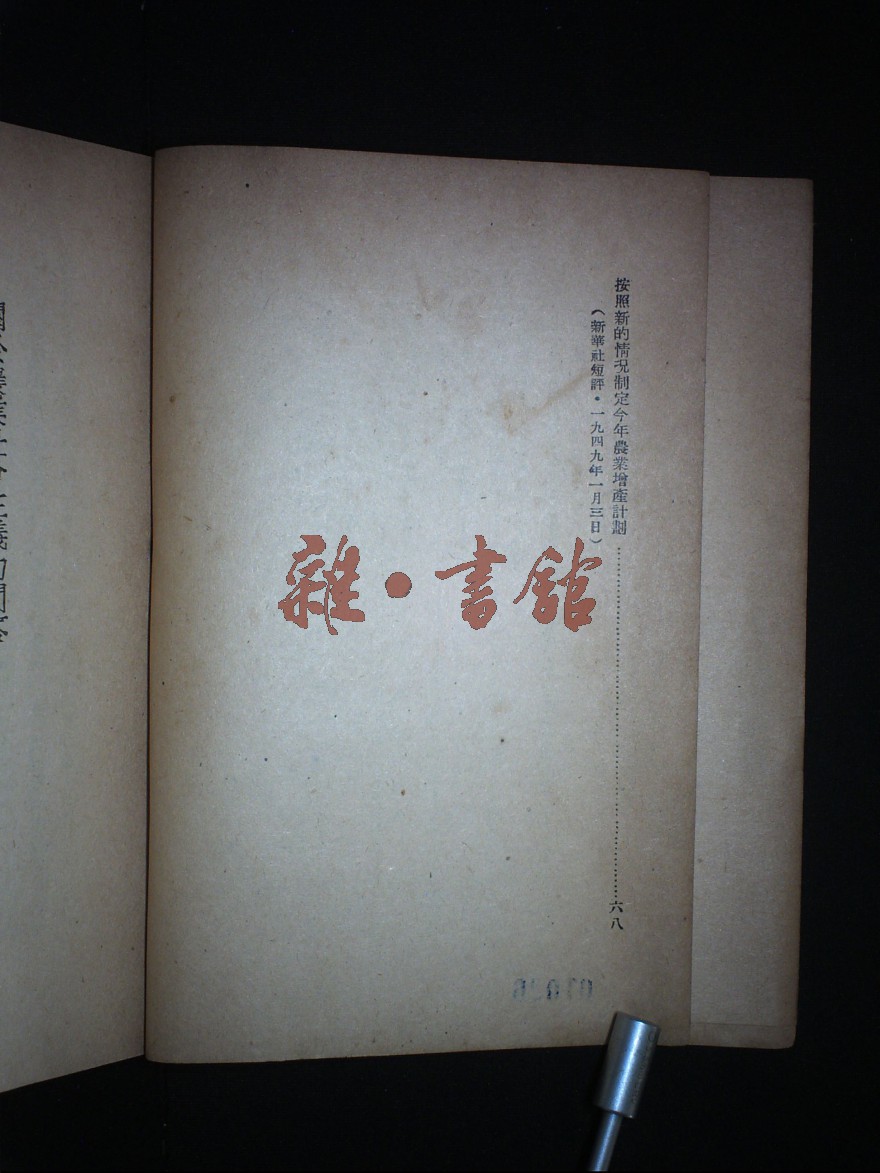 按照新的情況制定今年農業增產計劃……六八
(新華社短評·一九四九年一月三日)
雜·書館